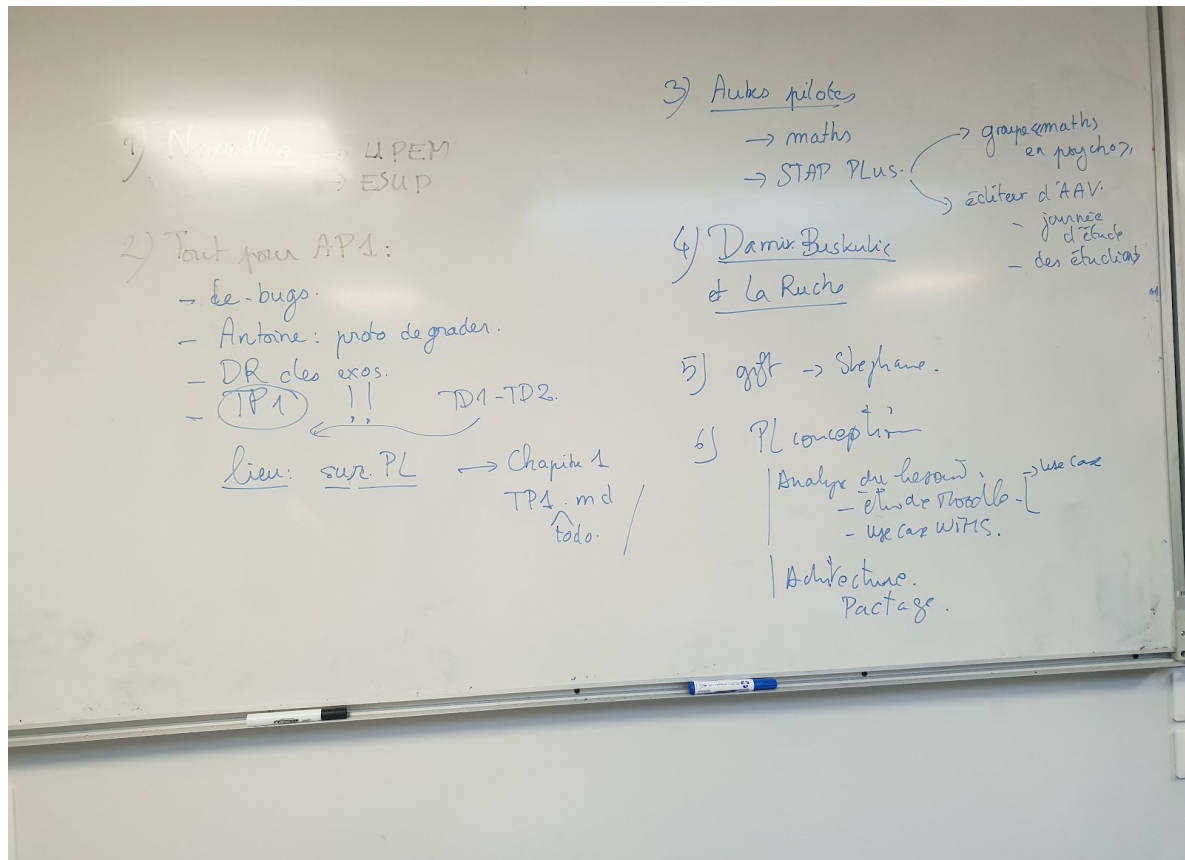 1) Nouvelles → UPEM
→ ESUP
2) Tout pour AP1 :
- de-bugs.
- Antoine : proto de grader.
- DR des exos.
- TP1 !! TD1-TD2.
lieu : sur PL → Chapitre 1
TP1.md
todo.
3) Autres pilotes
→ maths
→ STAP PLUS.
→ groupe "maths
en psycho",
→ éditeur d'AAV.
- journée
d'étude
- des étudiants
4) Damir Buskulic
et La Ruche
5) gift → Stéphane.
6) PL conception
Analyse du besoin.
- étude Moodle → use case
- use case WIMS.
Architecture.